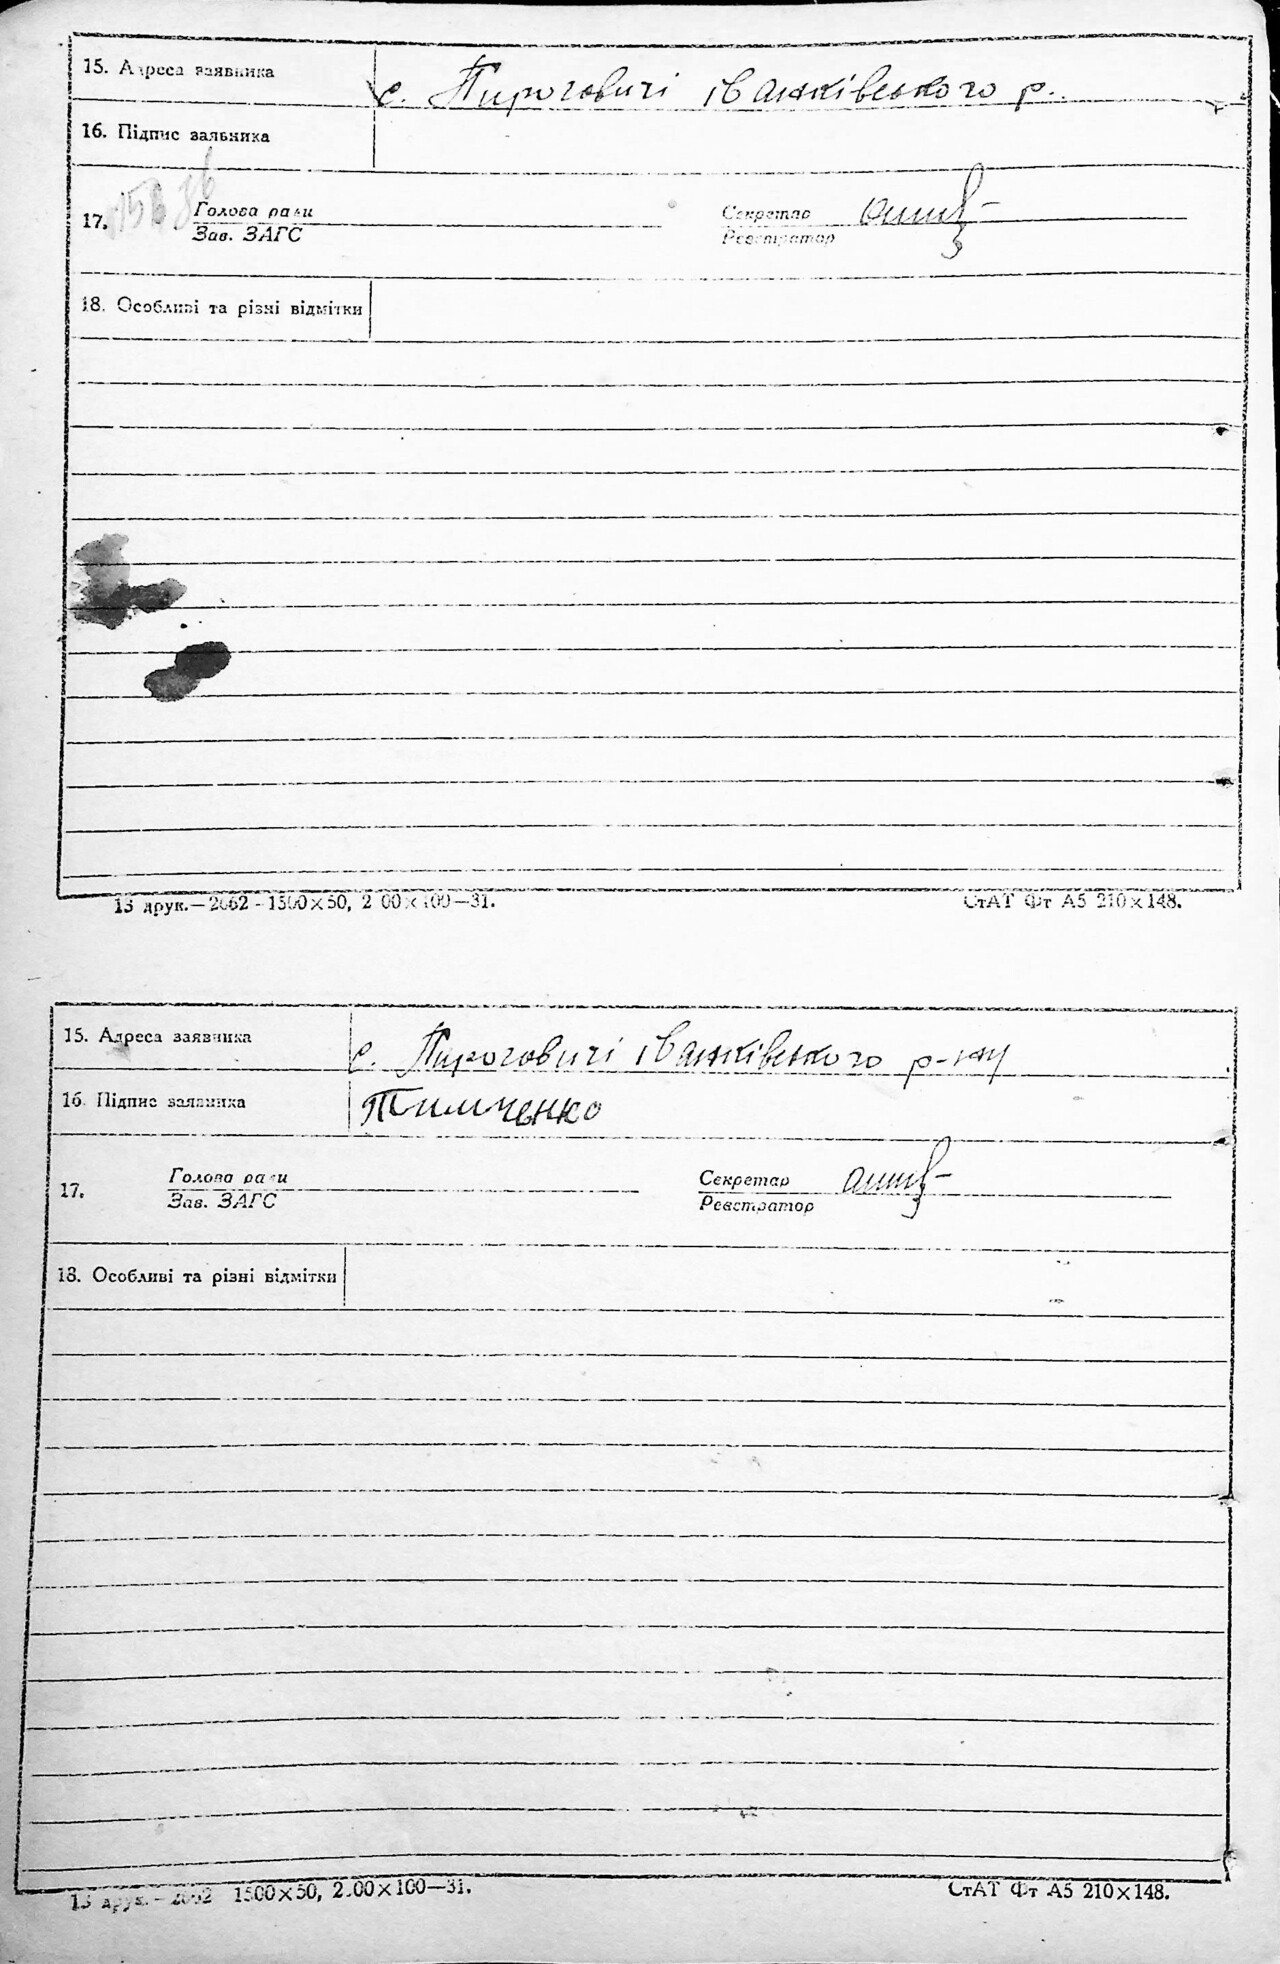 15. Адреса заявника с. Пироговичі іванківського р.
16. Підпис заявника
17. Голова ради Секретар
Зав. ЗАГС Реєстратор
18. Особливі та різні відмітки
13 друк.—2662 - 1500×50, 2 00×100—31. СтАТ Фт А5 210×148.
15. Адреса заявника с. Пироговичі іванківського р-ну
16. Підпис заявника Тимченко
17. Голова ради Секретар
Зав. ЗАГС Реєстратор
18. Особливі та різні відмітки
13 друк.— 2662 1500×50, 2.00×100—31. СтАТ Фт А5 210×148.